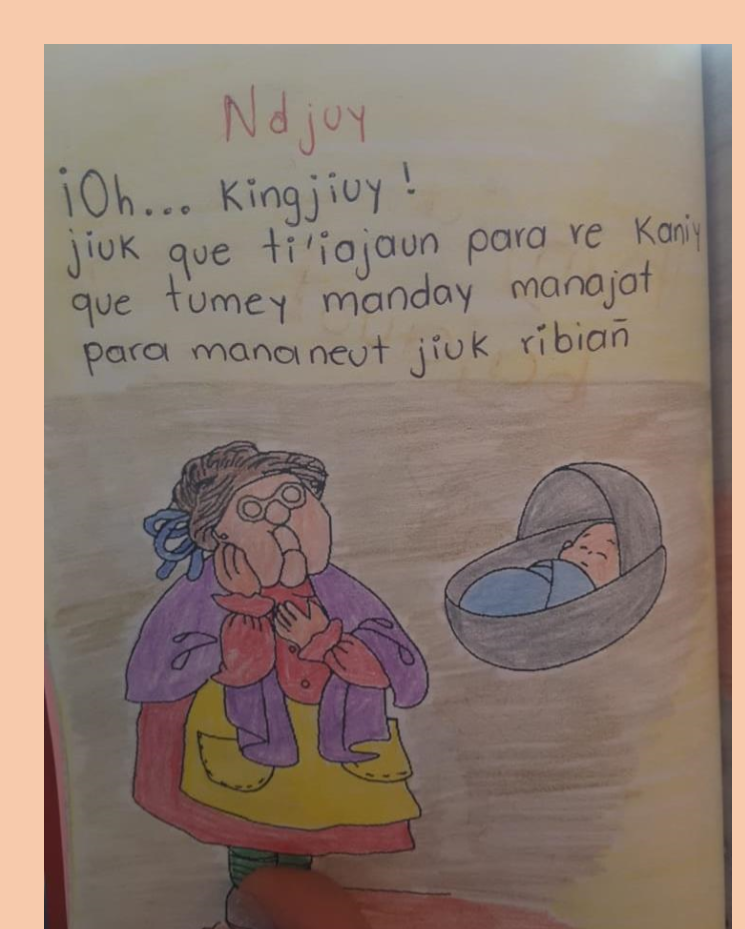 Ndjuy
¡Oh... Kingjiuy!
jiuk que ti'iajaun para re Kaniy
que tumey manday manajat
para mananeut jiuk ribiañ